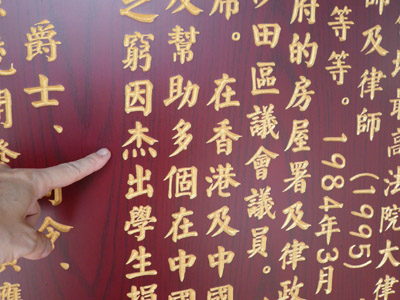 最高法院大律
師及律師 (1995)
等等。1984年3月
府的房屋署及律政
田區議會議員。
席。在香港及中國
及幫助多個在中國
之窮因杰出學生捐
爵士、